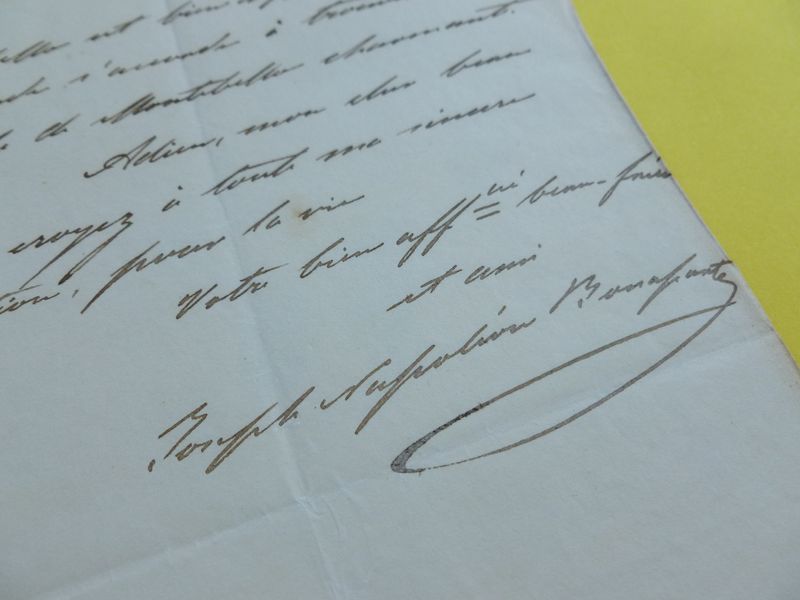 elle est bien
s'accorde à trouver
de Montebello charmant.
Adieu, mon cher beau
croyez à toute ma sincère
tion, pour la vie
Votre bien aff^né beau-frère
et ami
Joseph Napoléon Bonaparte